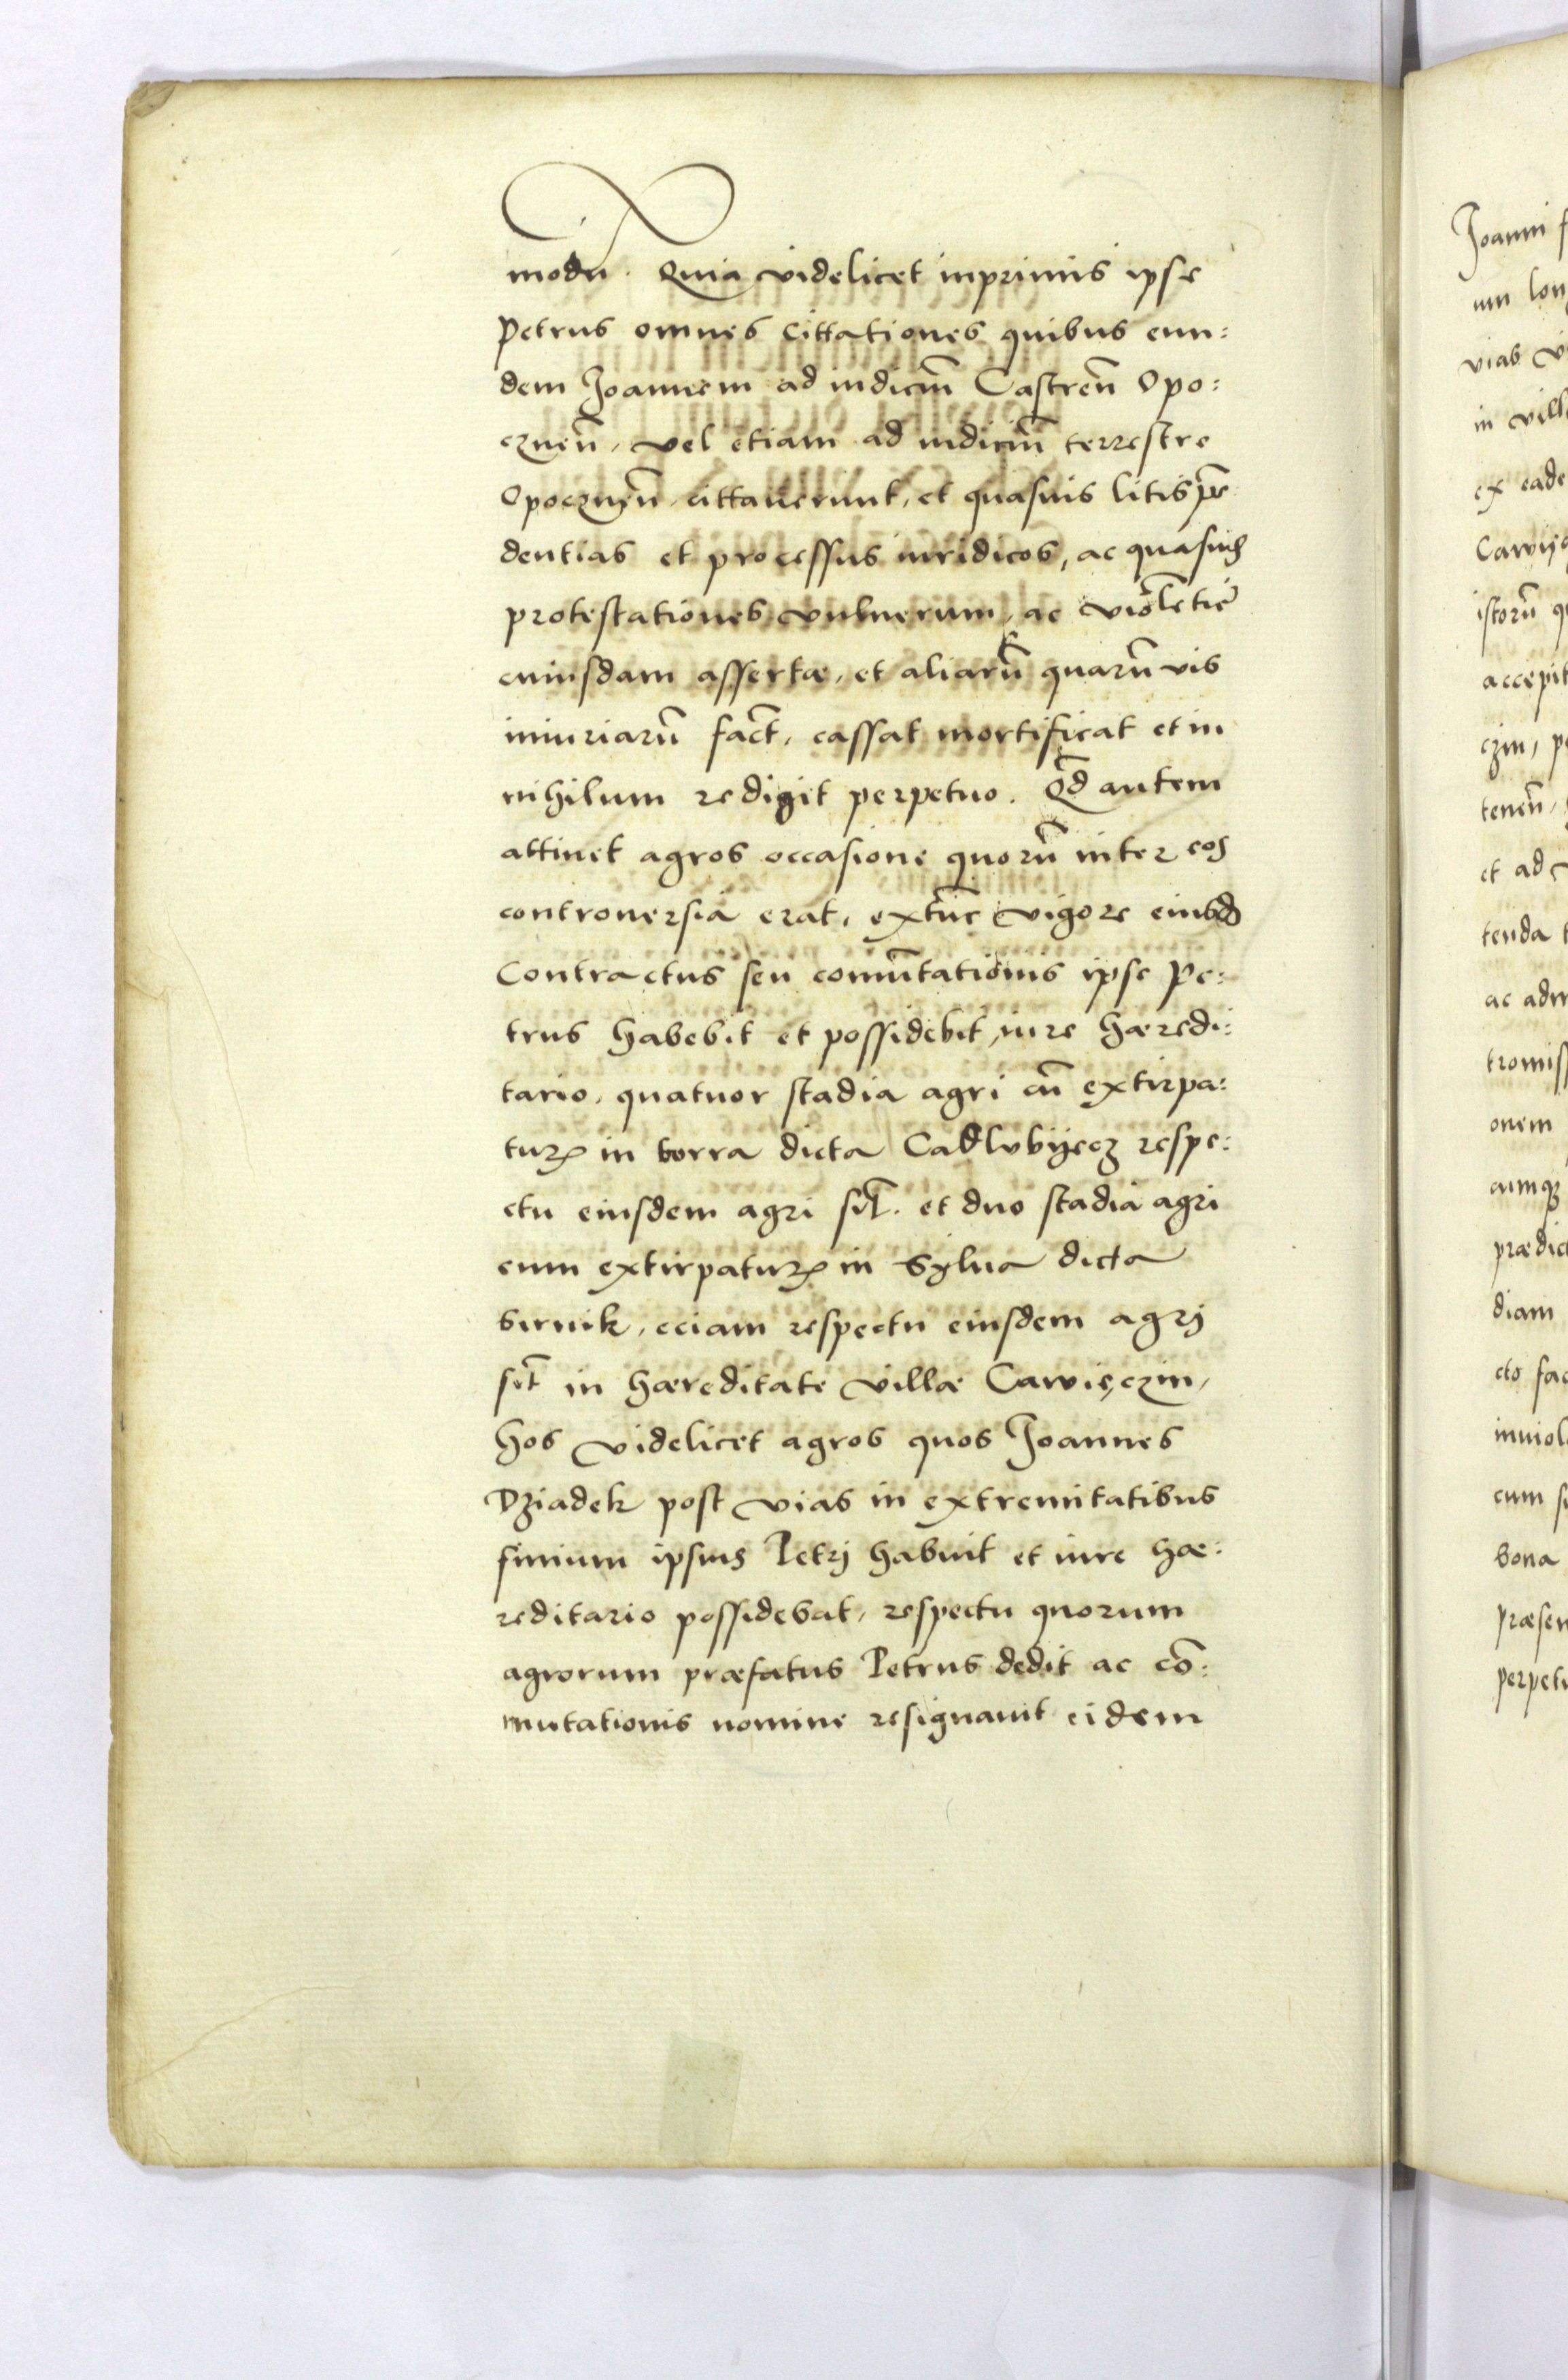 modū. Quia videlicet inprimis ipse
Petrus omnes cittationes quibus eun:
dem Joannem ad iudiciū Castreñ Opo:
cznen̄, vel etiam ad iudiciū terrestre
Opocznen̄ cittauerunt, et quasuis litis pē
dentias et processus iuridicos, ac quasuis
protestationes vulnerum, ac violētie
cuiusdam assertæ, et aliarū quarūvis
iniuriarū fact̄, cassat mortificat et in
nihilum redigit perpetuo. Qd̄ autem
attinet agros occasione quorū inter eos
controuersia erat, extūc vigore eiusd
Contractus seu comūtationis ipse Pe:
trus habebit et possidebit, iure hæredi:
tario, quatuor stadia agri cū extirpa:
tur in borra dicta Cadlubyecz respe:
ctu eiusdem agri sīl. et duo stadia agri
cum extirpatur in Sylua dicta
Sirnik, eciam respectu eiusdem agrj
sīl in hæreditate villæ Carwięczin,
hos videlicet agros quos Joannes
Dziadek post vias in extremitatibus
finium ipsius Petrj habuit et iure hæ:
reditario possidebat, respectu quorum
agrorum præfatus Petrus dedit ac cō:
mutationis nomine resignauit eidem
Joanni
um
viab
in
ex eade
istorū
accepit
czin,
tenen̄,
et ad
tenda
ac
tromiss
onem
cumq
prædict
diam
cto fac
inuiol
cum
bona
præsen
perpetu